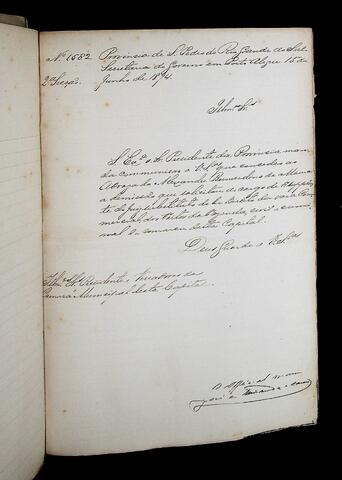 Nº 1582 Provincia de S. Pedro do Rio Grande do Sul
2ª Secção. Secretaria do Governo em Porto Alegre 15 de
Junho de 1874.
Illmos Srs
S. Exª o Sr. Presidente da Provincia man
da communicar a VSªs que concedeu ao
Advogado Alexandre Bernardino de
a demissão que solicitou do cargo de Supplen
te do juiz substituto da vara Com
mercial, dos feitos da fazenda, civil e crimi
nal da comarca desta Capital.
Deus Guarde a VSªs
Illmos Srs Presidente e Vereadores da
Camara Municipal desta Capital.
O Official maior